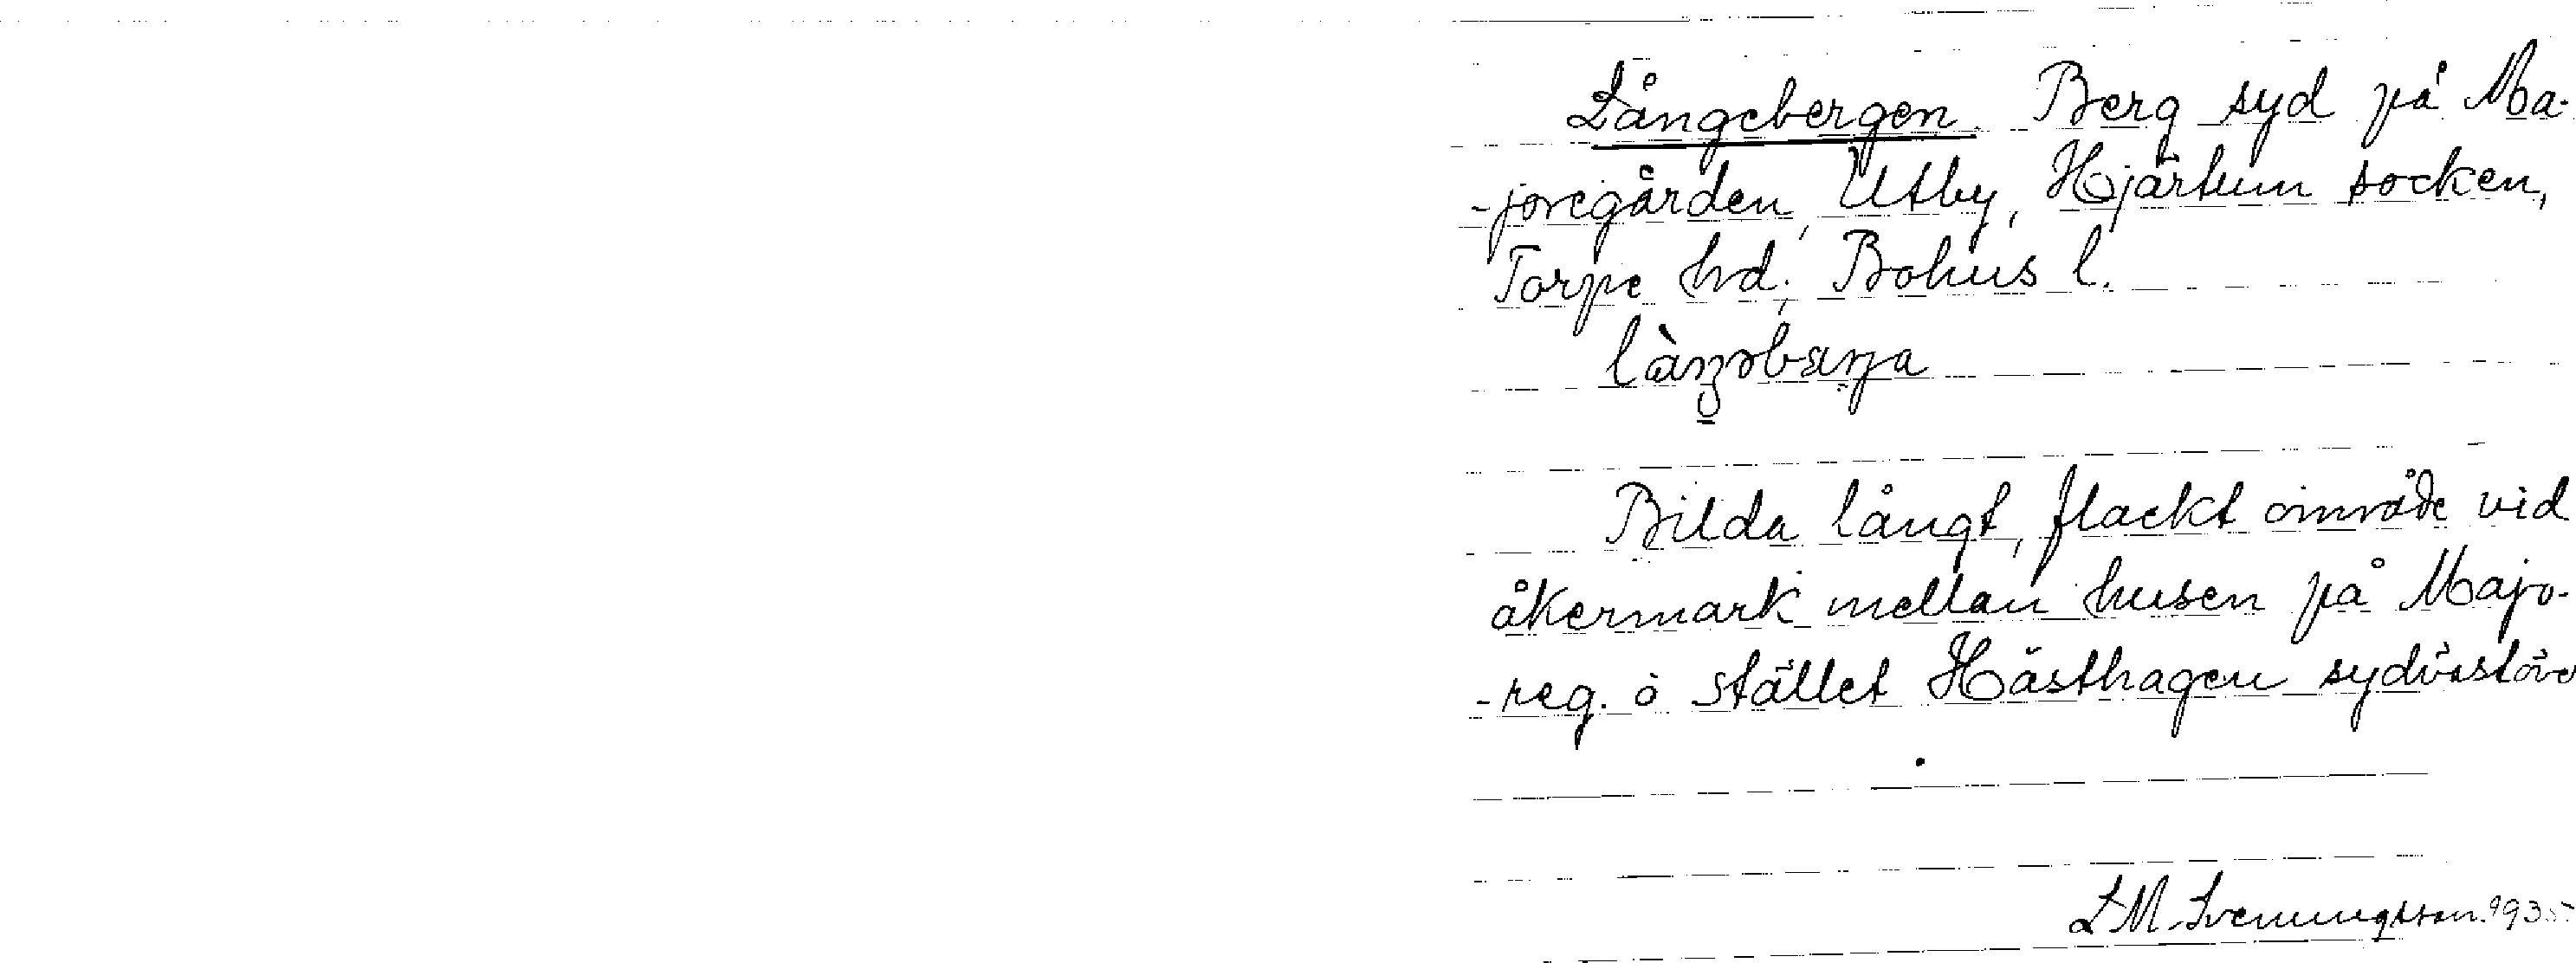 Långebergen. Berg syd på Ma-
-joregården, Utby, Hjärtum socken,
Torpe hd; Bohus l.
Bilda långt, flackt område vid
åkermark mellan husen på Majo-
-reg. o stället Hästhagen sydväst
L M. Svenningsson. 1935